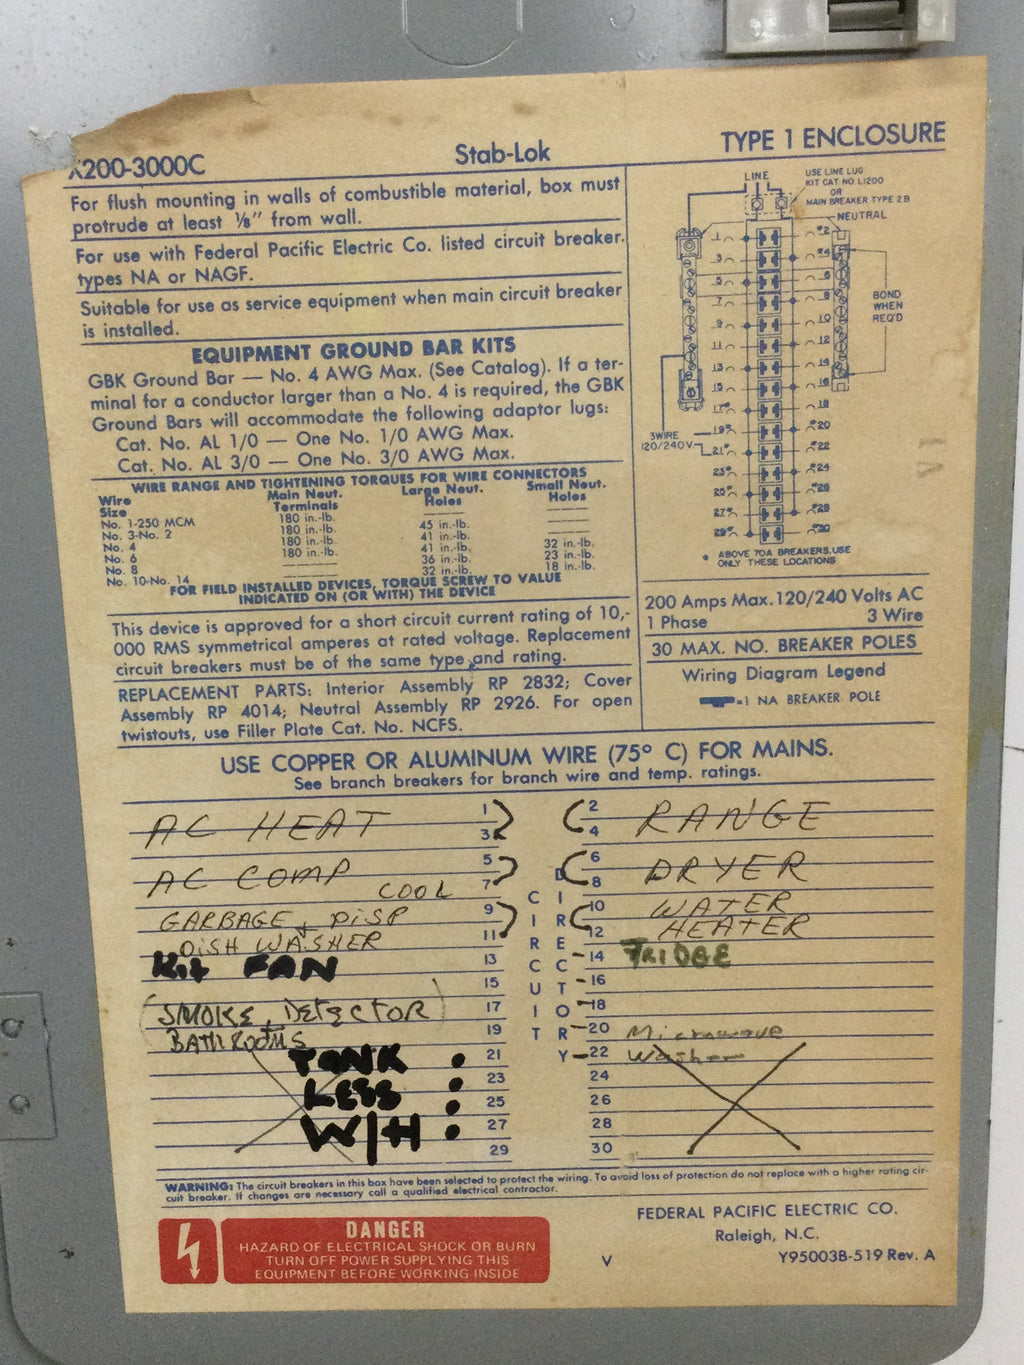 X200-3000C Stab-Lok TYPE 1 ENCLOSURE
For flush mounting in walls of combustible material, box must
protrude at least 1/8" from wall.
For use with Federal Pacific Electric Co. listed circuit breaker
types NA or NAGF.
Suitable for use as service equipment when main circuit breaker
is installed.
EQUIPMENT GROUND BAR KITS
GBK Ground Bar — No. 4 AWG Max. (See Catalog). If a ter-
minal for a conductor larger than a No. 4 is required, the GBK
Ground Bars will accommodate the following adaptor lugs:
Cat. No. AL 1/0 — One No. 1/0 AWG Max.
Cat. No. AL 3/0 — One No. 3/0 AWG Max.
WIRE RANGE AND TIGHTENING TORQUES FOR WIRE CONNECTORS
Wire Main Neut. Large Neut. Small Neut.
Size Terminals Holes Holes
No. 1-250 MCM 180 in.-lb.
No. 3-No. 2 180 in.-lb. 45 in.-lb.
No. 4 180 in.-lb. 41 in.-lb.
No. 6 180 in.-lb. 41 in.-lb. 32 in.-lb.
No. 8 36 in.-lb. 23 in.-lb.
No. 10-No. 14 32 in.-lb. 18 in.-lb.
FOR FIELD INSTALLED DEVICES, TORQUE SCREW TO VALUE
INDICATED ON (OR WITH) THE DEVICE
This device is approved for a short circuit current rating of 10,-
000 RMS symmetrical amperes at rated voltage. Replacement
circuit breakers must be of the same type and rating.
REPLACEMENT PARTS: Interior Assembly RP 2832; Cover
Assembly RP 4014; Neutral Assembly RP 2926. For open
twistouts, use Filler Plate Cat. No. NCFS.
LINE
USE LINE LUG
KIT CAT NO. L1200
OR
MAIN BREAKER TYPE 2B
NEUTRAL
1 *2
3 *4
5 6
7 8
9 10
11 12
13 14
15 16
17* 18
19* *20
21* *22
23* *24
25* *26
27* *28
29* *30
BOND
WHEN
REQ'D
3WIRE
120/240V
* ABOVE 70A BREAKERS, USE
ONLY THESE LOCATIONS
200 Amps Max. 120/240 Volts AC
1 Phase 3 Wire
30 MAX. NO. BREAKER POLES
Wiring Diagram Legend
=1 NA BREAKER POLE
USE COPPER OR ALUMINUM WIRE (75° C) FOR MAINS.
See branch breakers for branch wire and temp. ratings.
CIRCUIT DIRECTORY
AC HEAT 1 2 RANGE
3 4
AC COMP 5 6 DRYER
COOL 7 8
GARBAGE DISP 9 10 WATER
+ DISH WASHER 11 12 HEATER
Kit FAN 13 14 FRIDGE
15 16
(SMOKE DETECTOR) 17 18
+ BATHROOMS 19 20 Microwave
TANK 21 22 Washer
23 24
LESS 25 26
W/H 27 28
29 30
WARNING: The circuit breakers in this box have been selected to protect the wiring. To avoid loss of protection do not replace with a higher rating cir-
cuit breaker. If changes are necessary call a qualified electrical contractor.
DANGER
HAZARD OF ELECTRICAL SHOCK OR BURN
TURN OFF POWER SUPPLYING THIS
EQUIPMENT BEFORE WORKING INSIDE
V
FEDERAL PACIFIC ELECTRIC CO.
Raleigh, N.C.
Y95003B-519 Rev. A